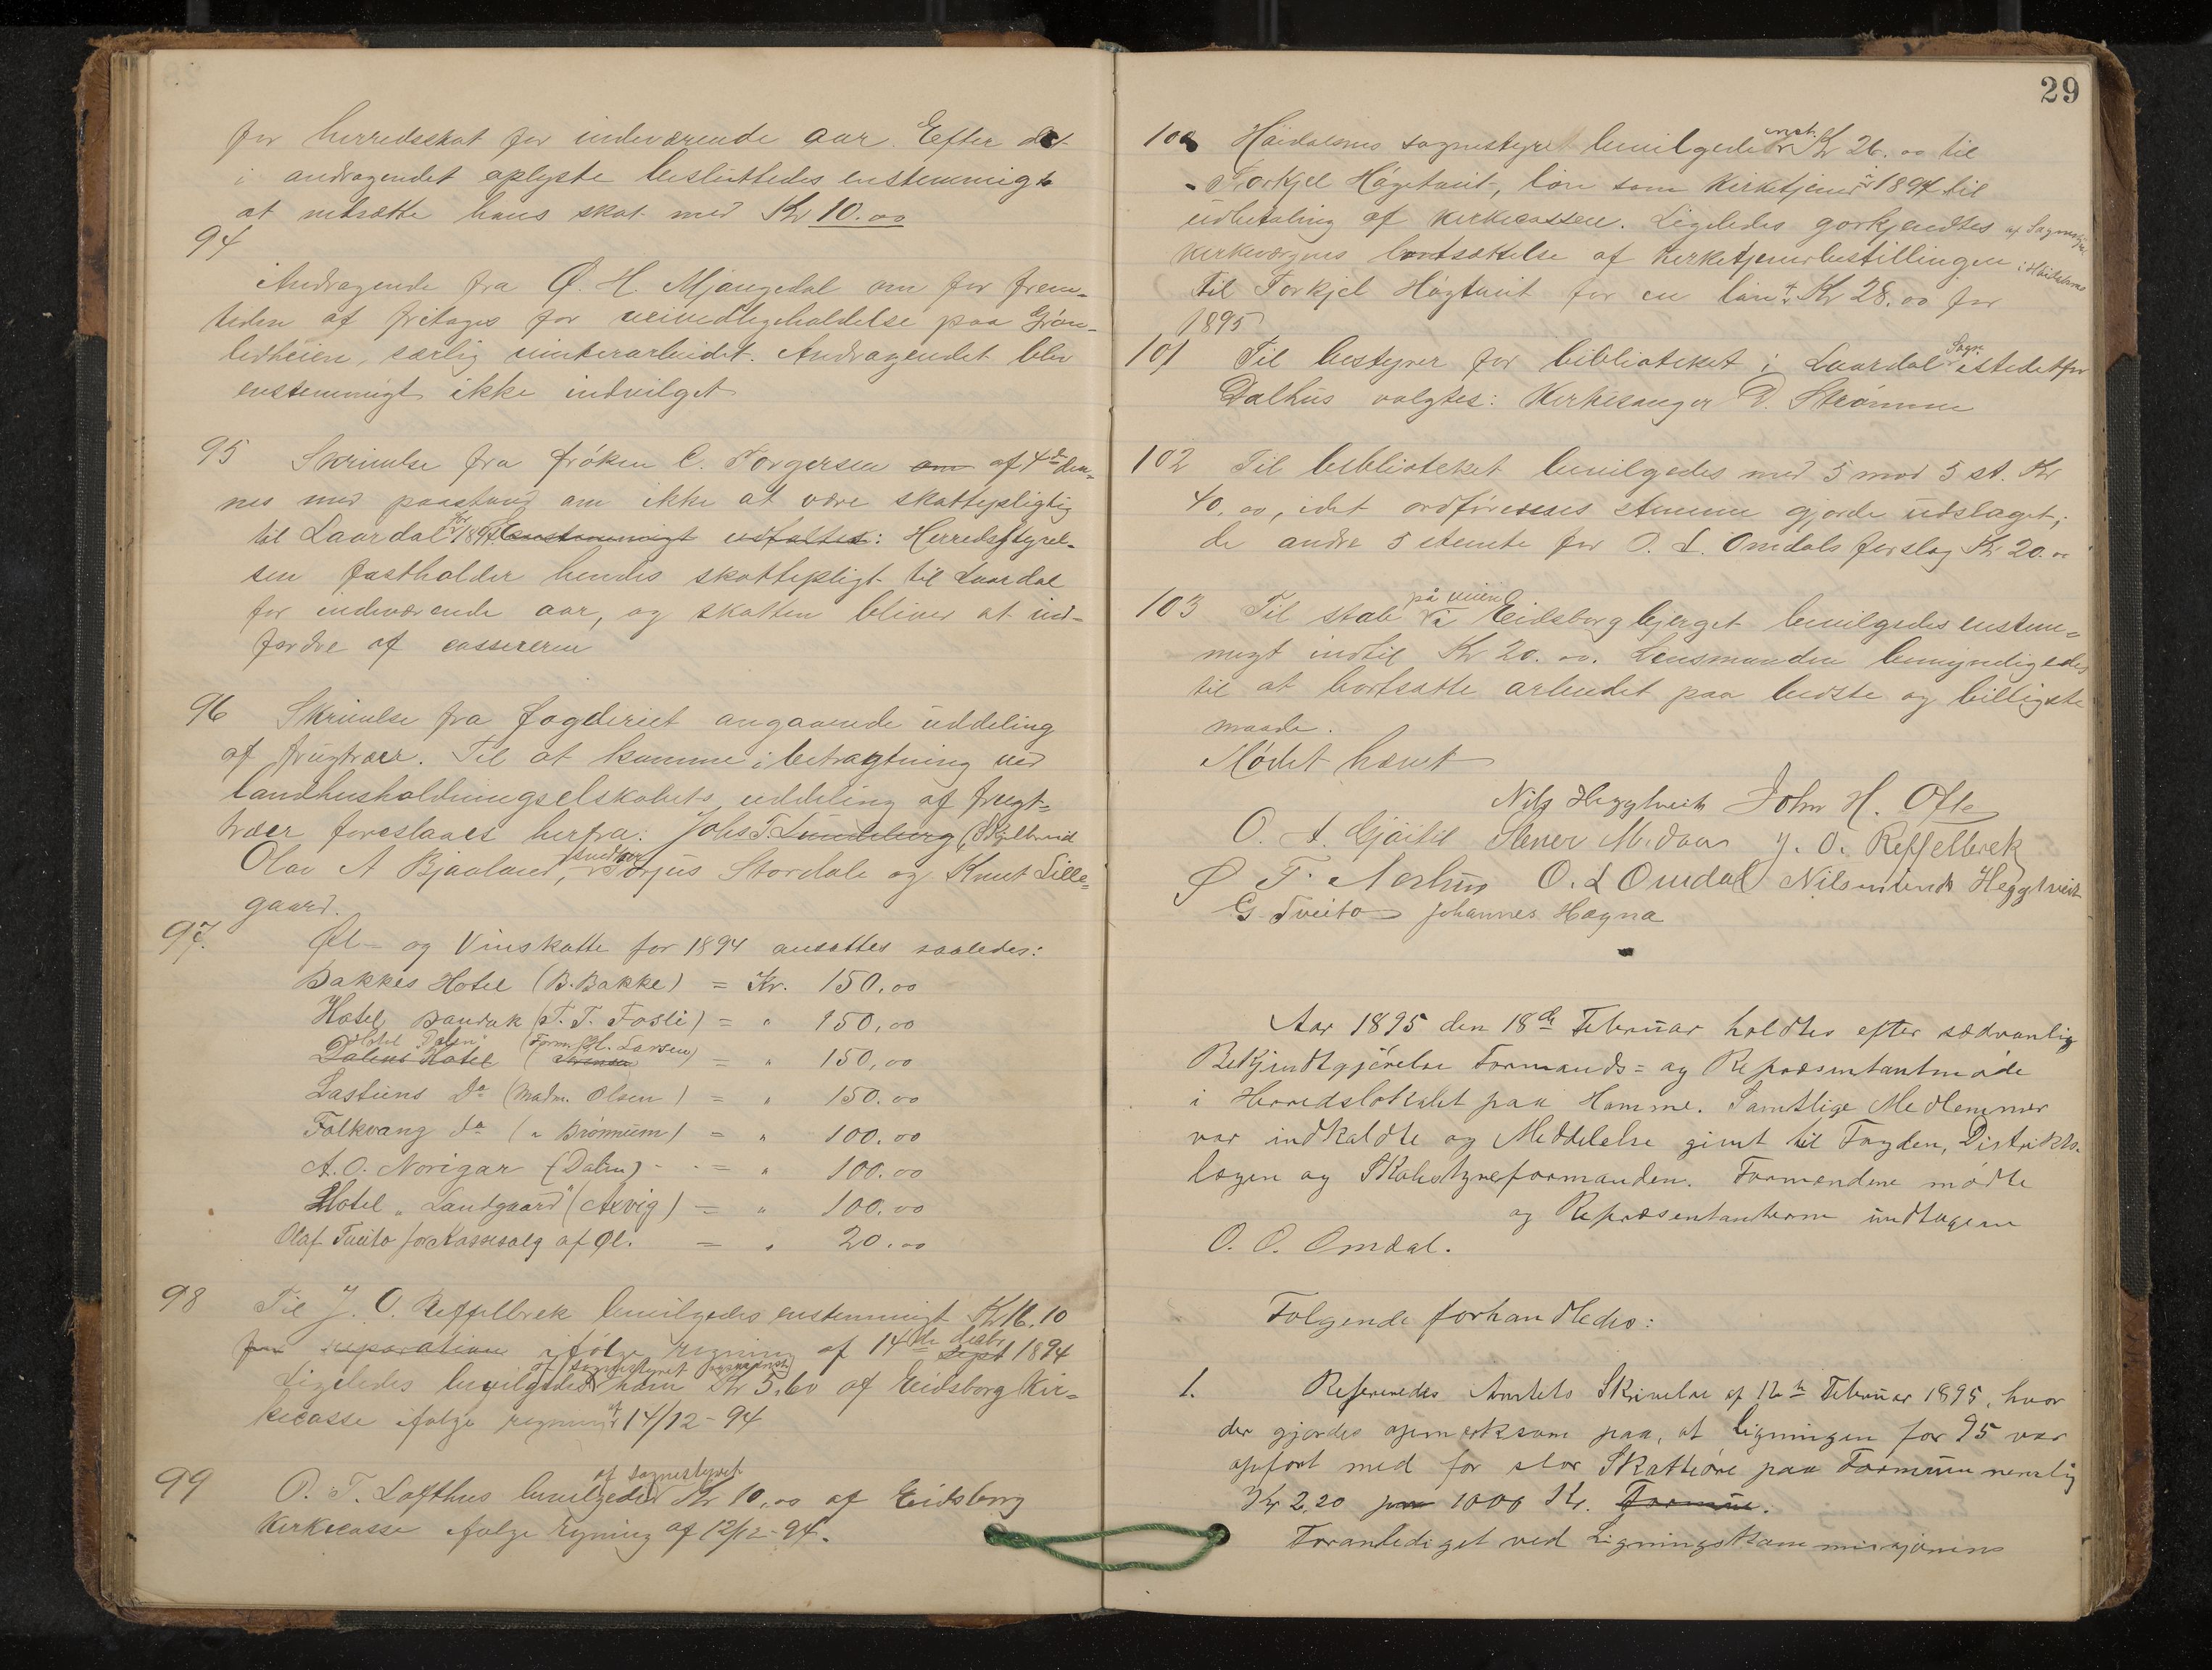 for herredsskat for indeværende aar. Efter det
i andragendet oplyste besluttedes enstemmigt
at nedsætte hans skat med Kr 10.00
94
Andragende fra Ø. H. Mjaugedal om for frem-
tiden at fritages for veivedligeholdelse paa Grøn-
lidheien, særlig vinterarbeidet. Andragendet blev
enstemmigt ikke indvilget
95 Skrivelse fra frøken C. Torgersen om af 4de den-
nes med paastand om ikke at være skattepligtig
til Laardal for 1894. enstemmigt udtaltes: Herredsstyrel-
sen fastholder hendes skattepligt til Laardal
for indeværende aar, og skatten bliver at ind-
fordre af cassereren
96 Skrivelse fra fogderiet angaaende uddeling
af frugtræer. Til at komme i betragtning ved
landhusholdningselskabets uddeling af frugt-
træer foreslaaes herfra: Johs T
Olav A Bjaaland, Torjus Stordale og Knut Lille-
gaard.
97. Øl- og Vinskatte for 1894 ansattes saaledes:
Bakkes Hotel (B. Bakke) = Kr. 150.00
Hotel Bandak (T. T. Fosli) = " 150,00
Hotel "Dalen" (Form. Gl. Larsen)
Dalens Hotel = " 150,00
Lastiens Do (Madm. Olsen) = " 150.00
Folkvang do (" Brømmum) = " 100.00
A. O. Norigar (Dalen) - - = " 100.00
Hotel "Landgaard" (Arvig) = " 100.00
Olaf Tveito for Kassesalg af Øl. = " 20.00
98 Til J. O. Reffelbrek bevilgedes enstemmigt Kr 16.10
for reparation ifølge regning af 14de decbr Sept 1894
af sognestyret
Ligeledes bevilgedes ham Kr 5.60 af Eidsborg Kir-
kecasse ifølge regning af 14/12-94
99 O. T. Lofthus bevilgedes af sognestyret Kr 10,00 af Eidsborg
Kirkecasse ifølge regning af 12/12-94.
29
100 Høidalsmo sognestyre bevilgede enst. Kr 26.00 til
Torkjel Høgetveit, løn som Kirketjener 1894 til
udbetaling af kirkecassen. Ligeledes godkjendtes af Sognestyret
kirkeværgens bortsættelse af kirketjenerbestillingen i Høidalsmo
til Torkjel Høgtveit for en løn Kr 28.00 for
1895
101 Til bestyrer for biblioteket i Laardal Sogn istedetfor
Dalhus valgtes: Kirkesanger D. Strømme
102 Til biblioteket bevilgedes med 5 mod 5 st. Kr
40.00, idet ordførerens stemme gjorde udslaget;
de andre 5 stemte for O. L. Omdals forslag Kr 20.00
103 Til stab på veien i Eidsborgbjerget bevilgedes enstem-
migt indtil Kr 20.00. Lensmanden bemyndigedes
til at bortsætte arbeidet paa bedste og billigste
maade.
Mødet hævet
Nils Heggtveit John H. Ofte
O. A. Gjøitil Stener Midaas J. O. Reffelbrek
Ø T. Neshus O. L Omdal Nils Heggtveit
G. Tveito Johannes Hagna
Aar 1895 den 18de Februar holdtes efter sædvanlig
Bekjendtgjørelse Formands- og Repræsentantmøde
i Herredslokalet paa Homme. Samtlige Medlemmer
var indkaldte og Meddelelse givet til Fogden, Distrikts-
lægen og Skolestyreformanden. Formændene mødte
og Repræsentanterne undtagen
O. O. Omdal.
Følgende forhandledes:
1. Refereredes Amtets Skrivelse af 12te Februar 1895, hvor
der gjordes opmerksom paa, at Ligningen for 95 var
opført med for stor Skatteøre paa Formue nemlig
Kr 2,20 pro 1000 Kr. Formue.
Foranlediget ved Ligningskommissjonens